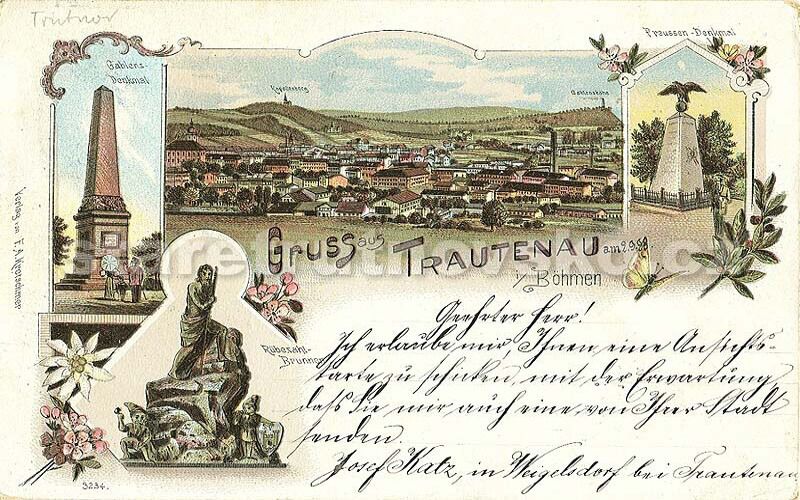 Trutnov
Gablenz-
Denkmal
Preussen-Denkmal
Kapellenberg
Gablenzhöhe
GRUSS aus TRAUTENAU
i/ Böhmen
am 2.9.
Rübezahl-
Brunnen
Geehrter Herr!
Ich erlaube mir Ihnen eine Ansichts-
karte zu schicken, mit der Erwartung
dass Sie mir auch eine von Ihrer Stadt
senden.
Josef Katz, in Weigelsdorf bei Trautenau
Verlag v.
3234.